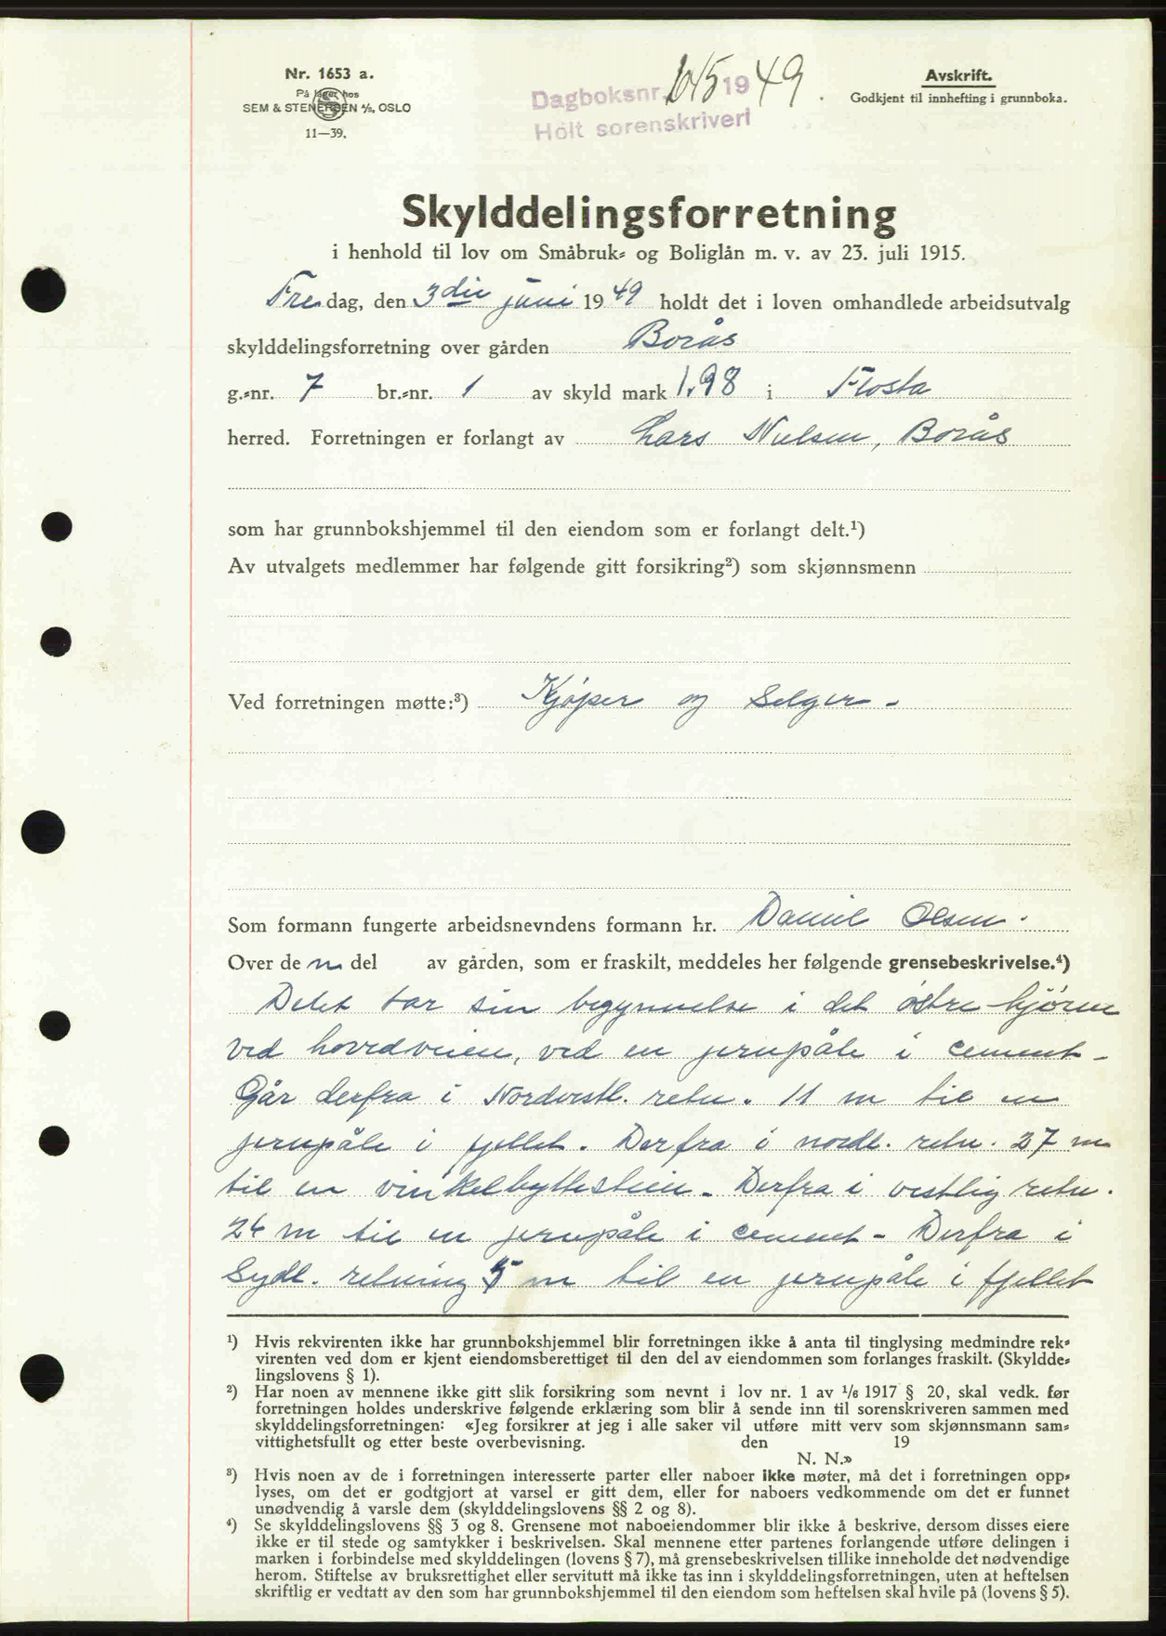 Nr. 1653 a.
På lager hos
SEM & STENERSEN A/S, OSLO
11—39.
Dagboksnr. 645 1949.
Holt sorenskriveri
Avskrift.
Godkjent til innhefting i grunnboka.
Skylddelingsforretning
i henhold til lov om Småbruk- og Boliglån m. v. av 23. juli 1915.
Fredag, den 3die juni 1949 holdt det i loven omhandlede arbeidsutvalg
skylddelingsforretning over gården Borås
g.-nr. 7 br.-nr. 1 av skyld mark 1.98 i Flosta
herred. Forretningen er forlangt av Lars Nielsen, Borås
som har grunnbokshjemmel til den eiendom som er forlangt delt.¹)
Av utvalgets medlemmer har følgende gitt forsikring²) som skjønnsmenn
Ved forretningen møtte:³) Kjøper og Selger -
Som formann fungerte arbeidsnevndens formann hr. Daniel Olsen.
Over den del av gården, som er fraskilt, meddeles her følgende grensebeskrivelse.⁴)
Delet tar sin begynnelse i det østre hjørne
ved hovedveien, ved en jernpåle i cement -
Går derfra i Nordvestl. retn. 11 m til en
jernpåle i fjellet. Derfra i nordl. retn. 37 m
til en vinkelbyttestein. Derfra i vestlig retn.
26 m til en jernpåle i cement - Derfra i
Sydl. retning 5 m til en jernpåle i fjellet
¹) Hvis rekvirenten ikke har grunnbokshjemmel blir forretningen ikke å anta til tinglysing medmindre rek-
virenten ved dom er kjent eiendomsberettiget til den del av eiendommen som forlanges fraskilt. (Skyldde-
lingslovens § 1).
²) Har noen av mennene ikke gitt slik forsikring som nevnt i lov nr. 1 av 1/6 1917 § 20, skal vedk. før
forretningen holdes underskrive følgende erklæring som blir å sende inn til sorenskriveren sammen med
skylddelingsforretningen: «Jeg forsikrer at jeg i alle saker vil utføre mitt verv som skjønnsmann sam-
vittighetsfullt og etter beste overbevisning. den 19
N. N.»
³) Hvis noen av de i forretningen interesserte parter eller naboer ikke møter, må det i forretningen opp-
lyses, om det er godtgjort at varsel er gitt dem, eller for naboers vedkommende om det er funnet
unødvendig å varsle dem (skylddelingslovens §§ 2 og 8).
⁴) Se skylddelingslovens §§ 3 og 8. Grensene mot naboeiendommer blir ikke å beskrive, dersom disses eiere
ikke er til stede og samtykker i beskrivelsen. Skal mennene etter partenes forlangende utføre delingen i
marken i forbindelse med skylddelingen (lovens § 7), må grensebeskrivelsen tillike inneholde det nødvendige
herom. Stiftelse av bruksrettighet eller servitutt må ikke tas inn i skylddelingsforretningen, uten at heftelsen
skriftlig er vedtatt av den som har grunnbokshjemmel til den eiendom som heftelsen skal hvile på (lovens § 5).